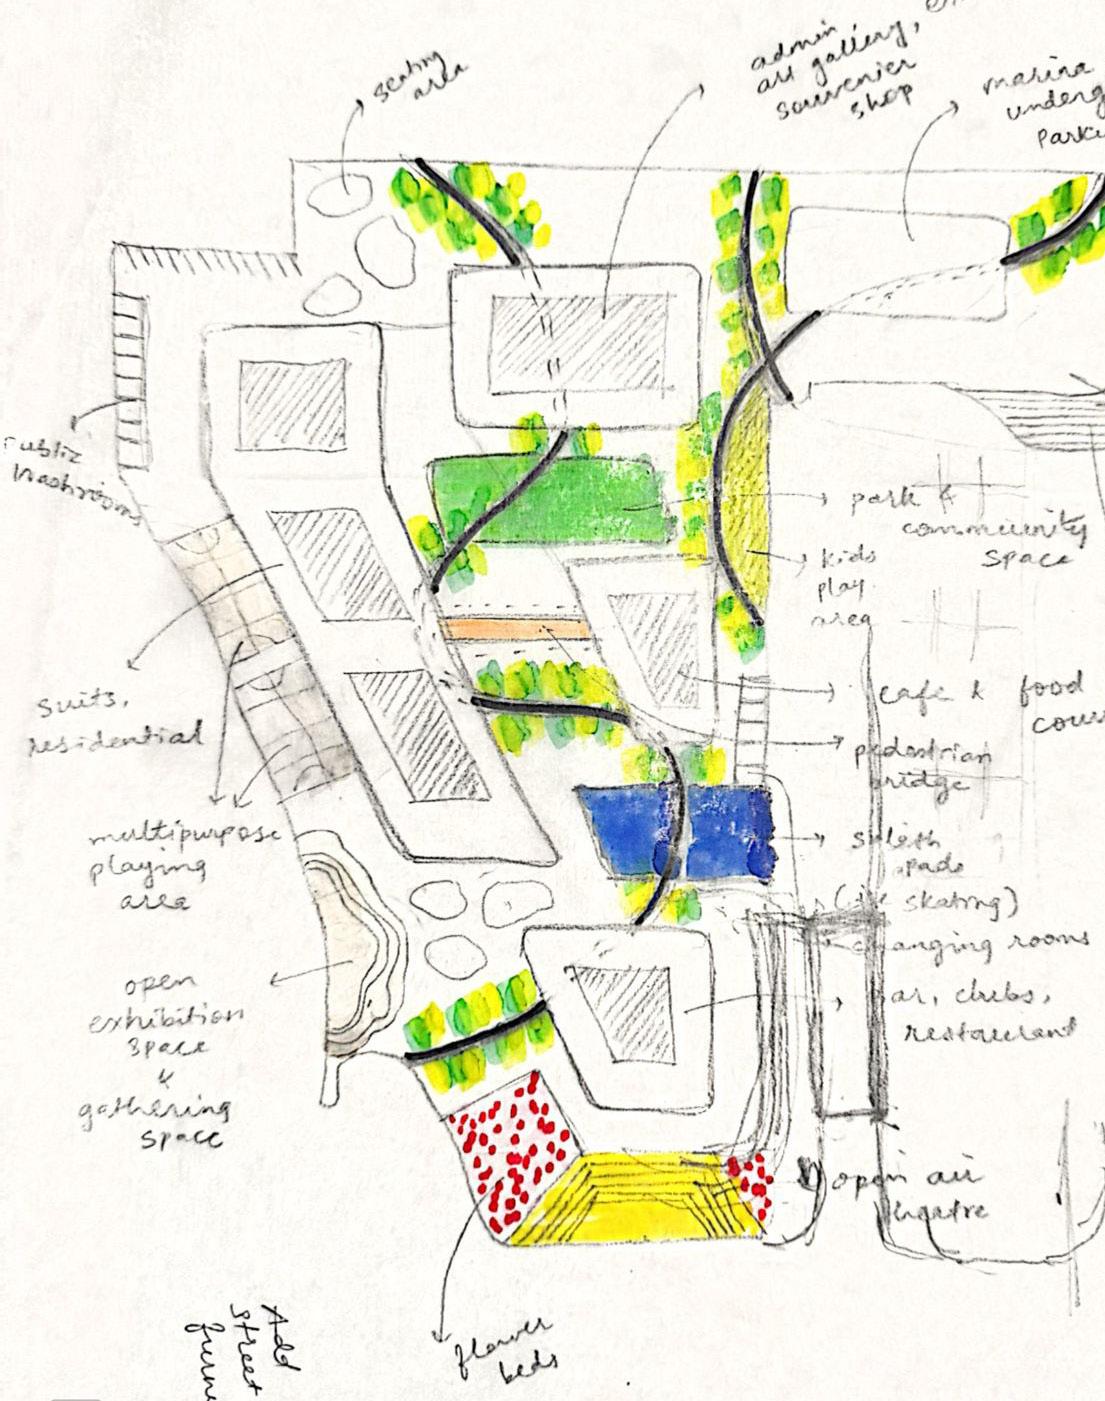 seating
area
admin
art gallery,
souvenier
shop
marina
underg
Parki
Public
Washrooms
park &
community
space
kids
play
area
suits,
residential
cafe & food
cour
pedestrian
bridge
multipurpose
playing
area
splash
pads
(ice skating)
changing rooms
open
exhibition
space
&
gathering
space
bar, clubs,
restaurant
open air
theatre
flower
beds
Add
street
furni